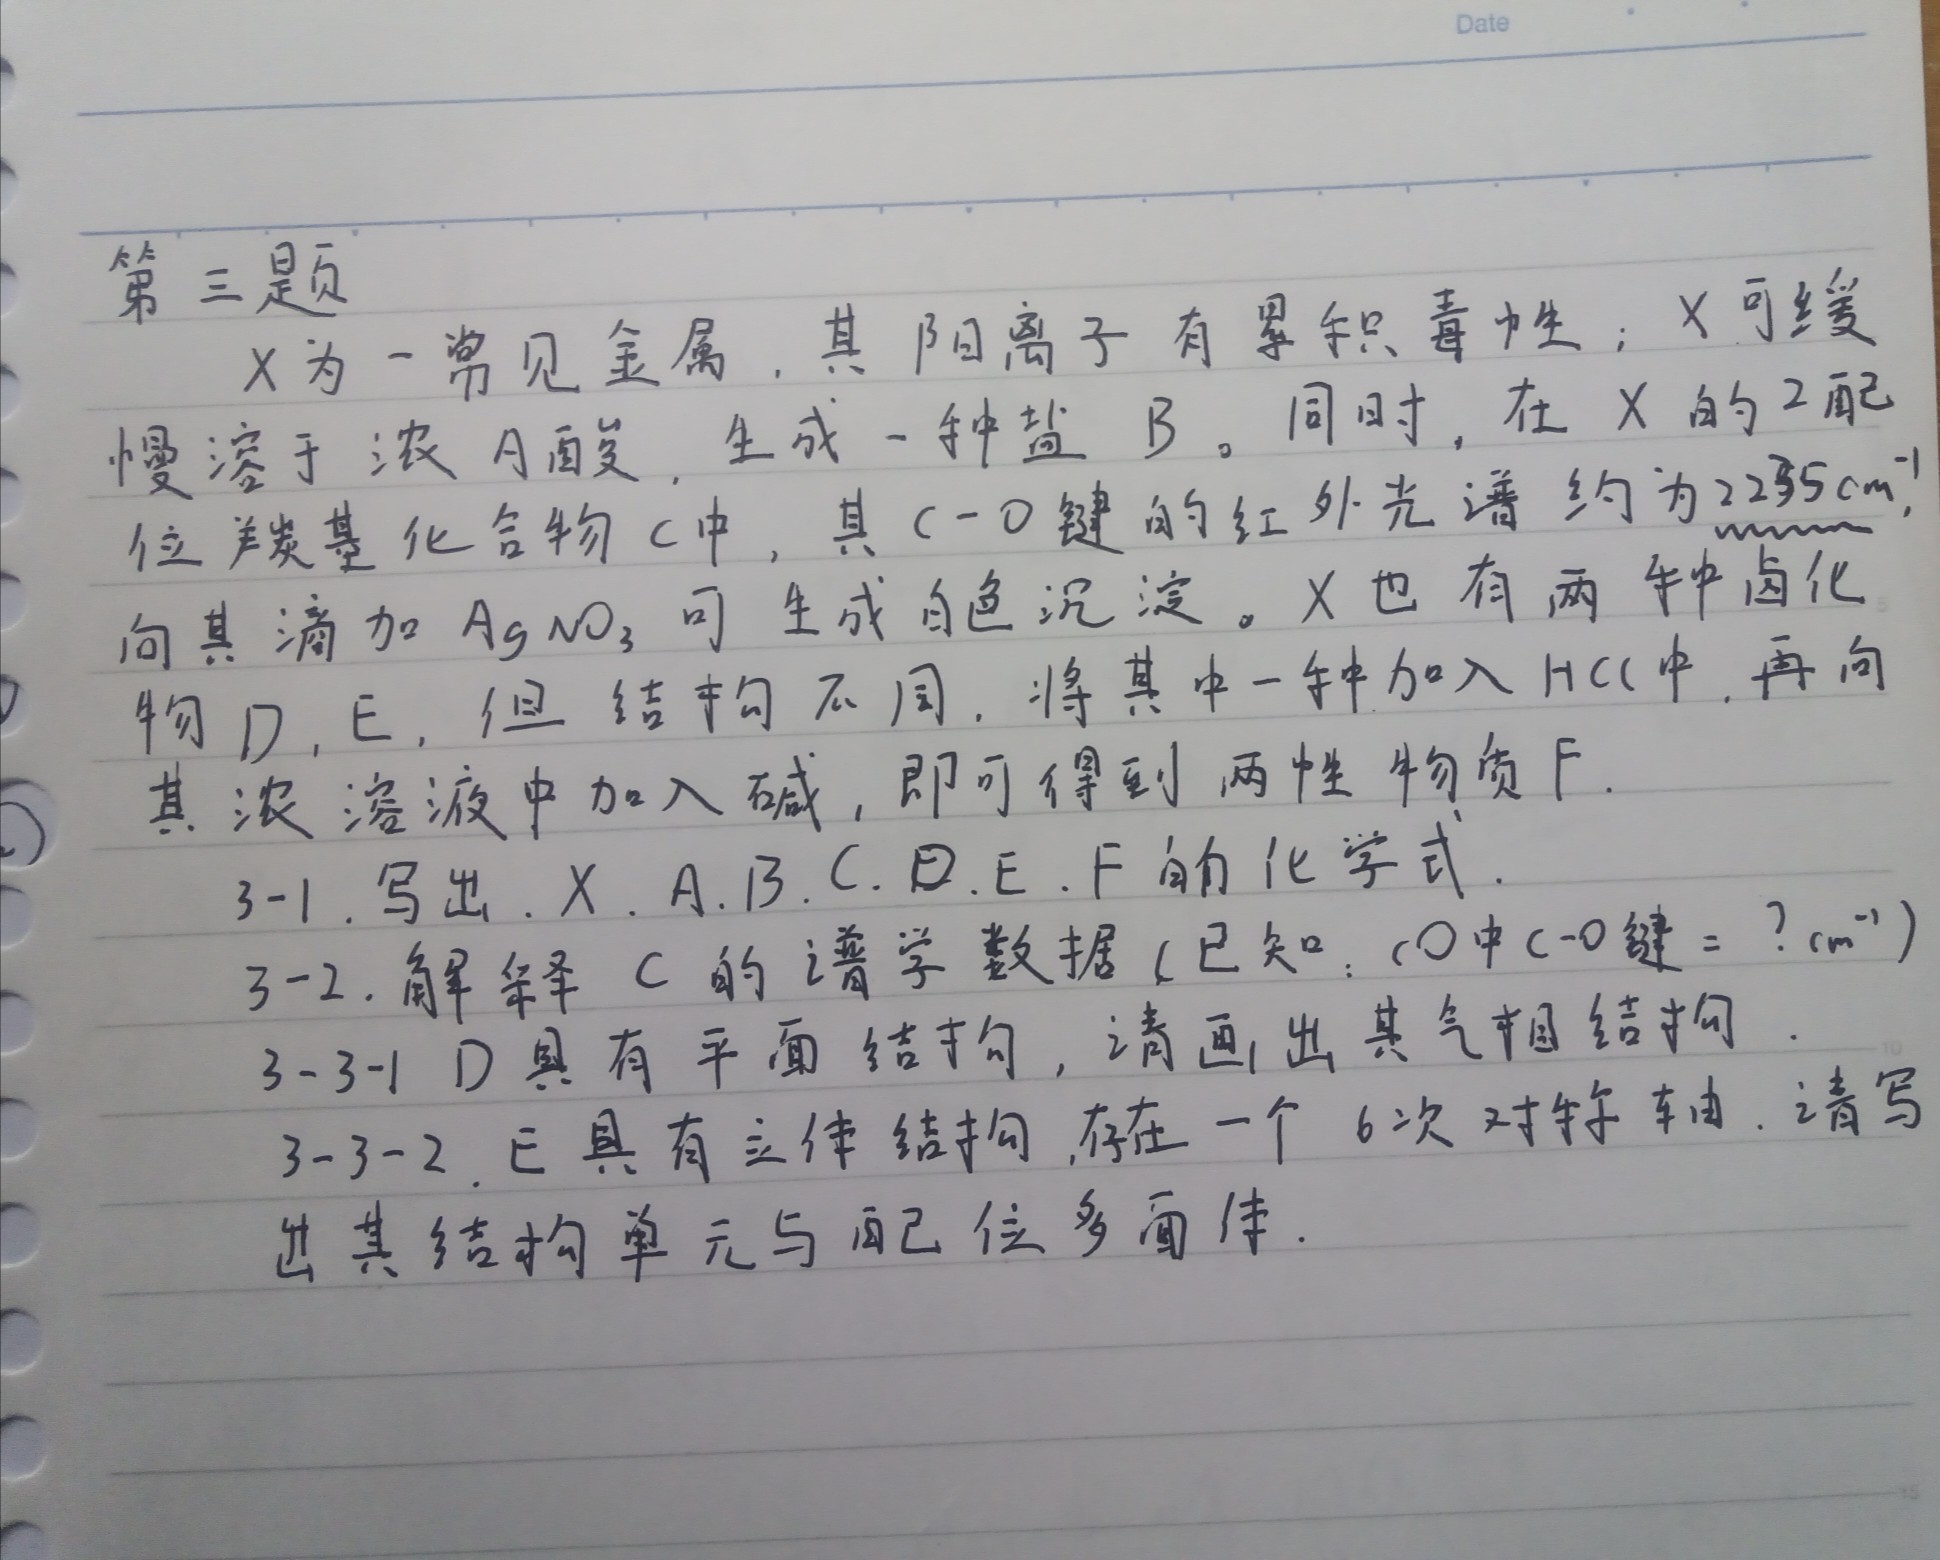 Date
第三题
X为一常见金属，其阳离子有累积毒性；X可缓
慢溶于浓A酸，生成一种盐B。同时，在X的2配
位羰基化合物C中，其C-O键的红外光谱约为2235cm⁻¹，
向其滴加AgNO₃可生成白色沉淀。X也有两种卤化
物D，E，但结构不同，将其中一种加入HCl中，再向
其浓溶液中加入碱，即可得到两性物质F.
3-1.写出.X.A.B.C.D.E.F的化学式.
3-2.解释C的谱学数据(已知：CO中C-O键=?cm⁻¹)
3-3-1 D具有平面结构，请画出其气相结构.
3-3-2.E具有立体结构，存在一个6次对称轴.请写
出其结构单元与配位多面体.